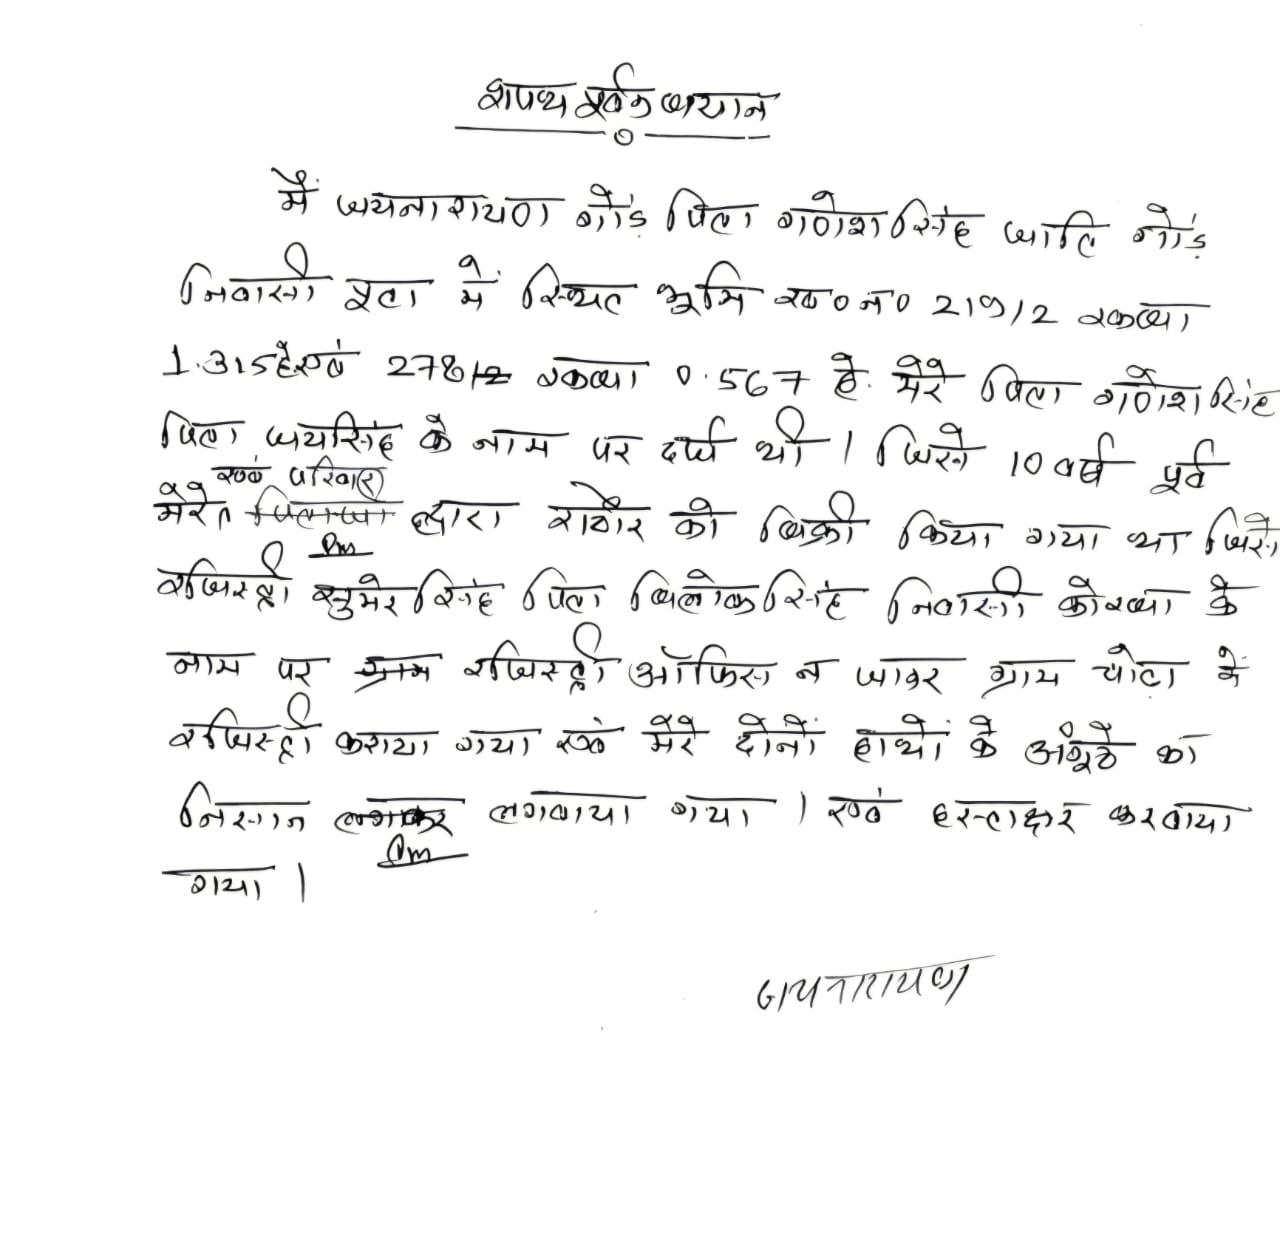 शपथ पूर्वक बयान
मैं जयनारायण गोंड पिता गणेश सिंह जाति गोंड
निवासी में स्थित भूमि ख0 न0 219/2 रकबा
1.315 हे एवं 278/2 रकबा 0.567 हे. मेरे पिता गणेश सिंह
पिता जयसिंह के नाम पर दर्ज थी । जिसे 10 वर्ष पूर्व
एवं परिवार
मेरे पिताजी द्वारा को बिक्री किया गया था जिसे
रजिस्ट्री सुमेर सिंह पिता त्रिलोक सिंह निवासी कोरबा के
नाम पर ग्राम रजिस्ट्री ऑफिस न जाकर ग्राम पोटा में
रजिस्ट्री कराया गया एवं मेरे दोनों हाथों के अंगूठे का
निशान लगाकर लगवाया गया । एवं हस्ताक्षर करवाया
गया ।
जयनारायण